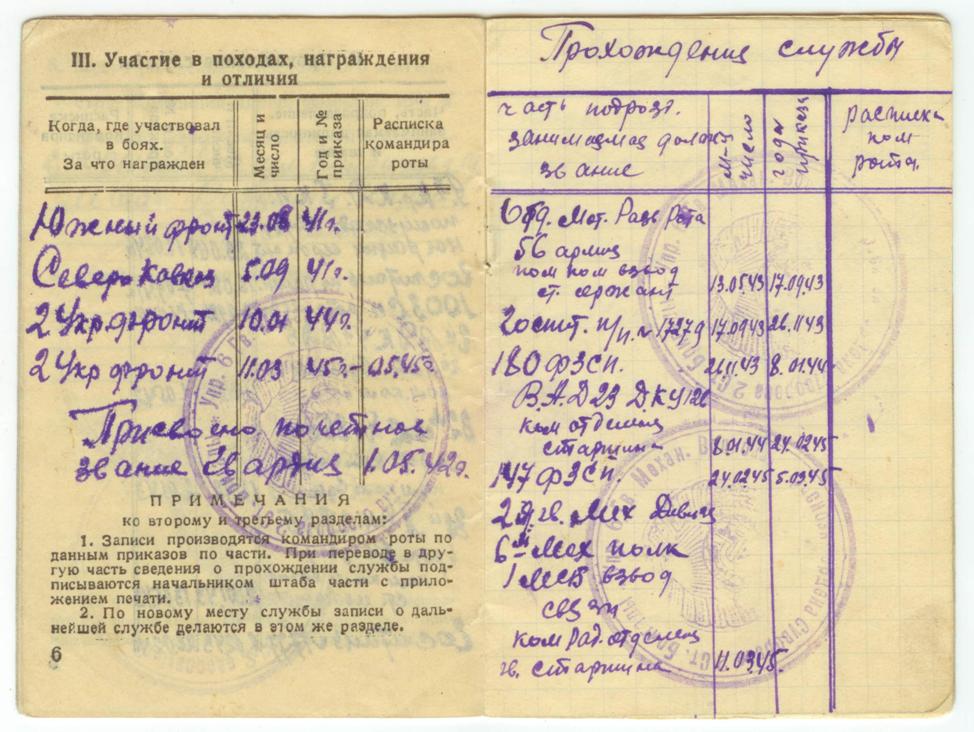 III. Участие в походах, награждения
и отличия
Когда, где участвовал
в боях.
За что награжден
Месяц и
число
Год и №
приказа
Расписка
командира
роты
Южный фронт 23.08 41г.
Северо Кавказ 5.09 41г.
2 Укр. фронт 10.01 44г.
2 Укр фронт 11.03 45г.-
Присвоено почетное
звание Гвардии 1.05.42г.
ПРИМЕЧАНИЯ
ко второму и третьему разделам:
1. Записи производятся командиром роты по
данным приказов по части. При переводе в дру-
гую часть сведения о прохождении службы под-
писываются начальником штаба части с прило-
жением печати.
2. По новому месту службы записи о даль-
нейшей службе делаются в этом же разделе.
6
Прохождение службы
часть подразд.
занимаемая должн
звание
м-ц
число
годы
приказа
расписка
ком
роты.
Отд. Мот. Разв Рота
56 армии
пом ком взвод
ст. сержант 13.05.43 17.09.43
17.09.43 26.11.43
180 ФЗСП. 8.01.44
ком отделен
старшина 8.01.44 24.02.45
147 ФЗСП. 24.02.45 5.03.45
гв. Мех Дивизия
6й Мех полк
взвод
связи
ком Рад. отделен
гв. старшина 11.03.45.